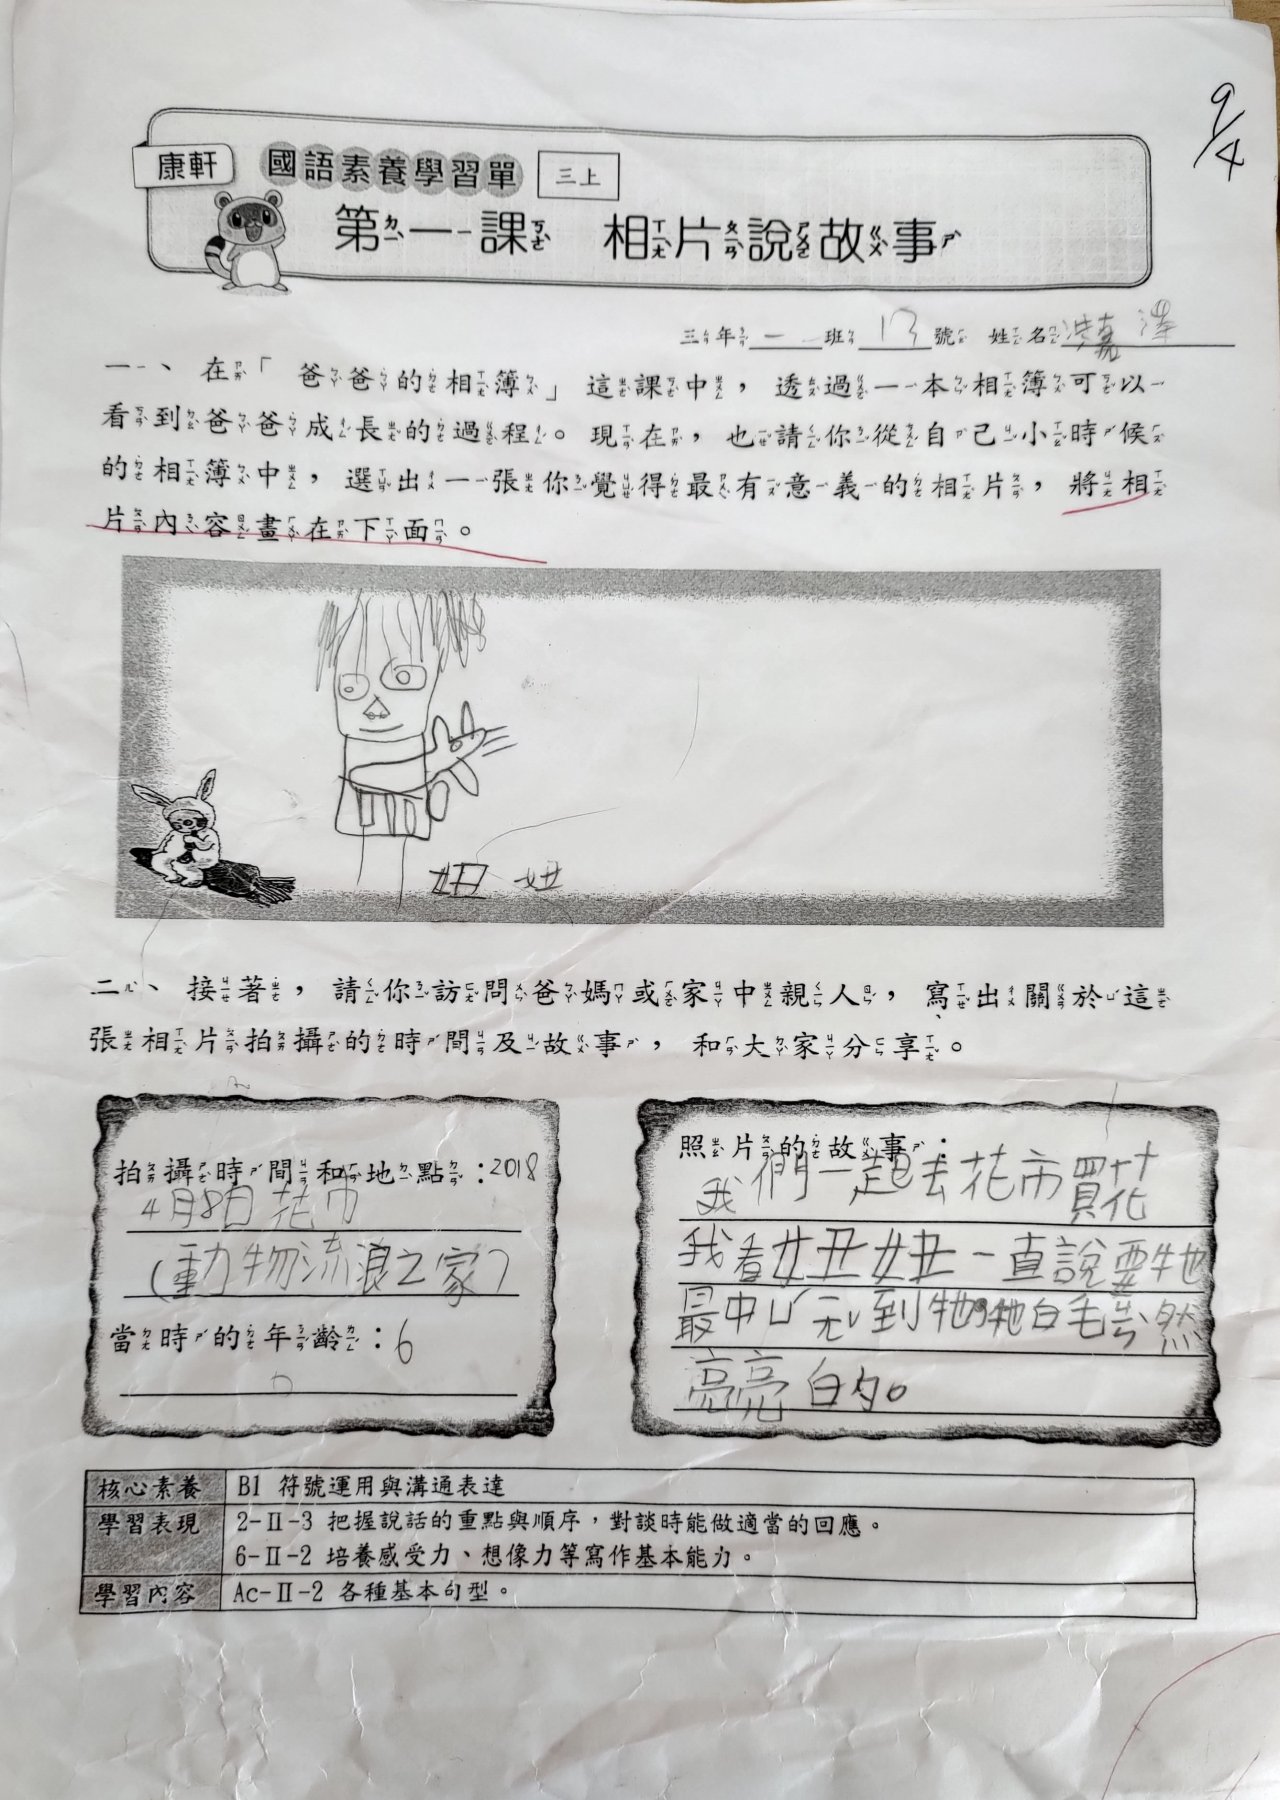 9/4
康軒 國語素養學習單 三上
第一課 相片說故事
三年一班13號 姓名 嘉澤
一、在「爸爸的相簿」這課中，透過一本相簿可以
看到爸爸成長的過程。現在，也請你從自己小時候
的相簿中，選出一張你覺得最有意義的相片，將相
片內容畫在下面。
妞妞
二、接著，請你訪問爸媽或家中親人，寫出關於這
張相片拍攝的時間及故事，和大家分享。
拍攝時間和地點：2018
4月8日花市
(動物流浪之家)
當時的年齡：6
照片的故事：
我們一起去花市買花
我看妞妞一直說要牠
最中ㄩ元ㄩ到牠牠白毛ㄐㄢ然
亮亮白的。
核心素養 B1 符號運用與溝通表達
學習表現 2-Ⅱ-3 把握說話的重點與順序，對談時能做適當的回應。
6-Ⅱ-2 培養感受力、想像力等寫作基本能力。
學習內容 Ac-Ⅱ-2 各種基本句型。